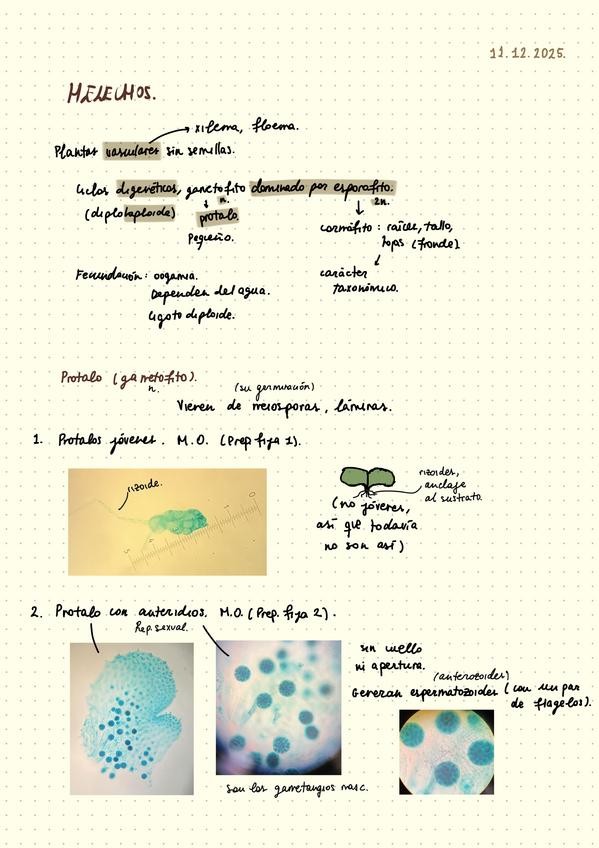 11.12.2025.
HELECHOS.
→ xilema, floema.
Plantas vasculares sin semillas.
Ciclos digenéticos, gametofito dominado por esporofito.
n. 2n.
(diplohaploide) protalo.
Pequeño.
cormófito: raíces, tallo,
hojas (fronde)
carácter
taxonómico.
Fecundación: oogamia.
Dependen del agua.
Cigoto diploide.
Protalo (gametofito).
n.
(su germinación)
Vienen de meiosporas, láminas.
1. Protalos jóvenes. M.O. (Prep fija 1).
rizoide.
0
5
rizoides,
anclaje
al sustrato.
(no jóvenes,
así que todavía
no son así)
2. Protalo con anteridios. M.O. (Prep. fija 2).
Rep. sexual.
sin cuello
ni apertura.
(anterozoides)
Generan espermatozoides (con un par
de flagelos).
son los gametangios masc.